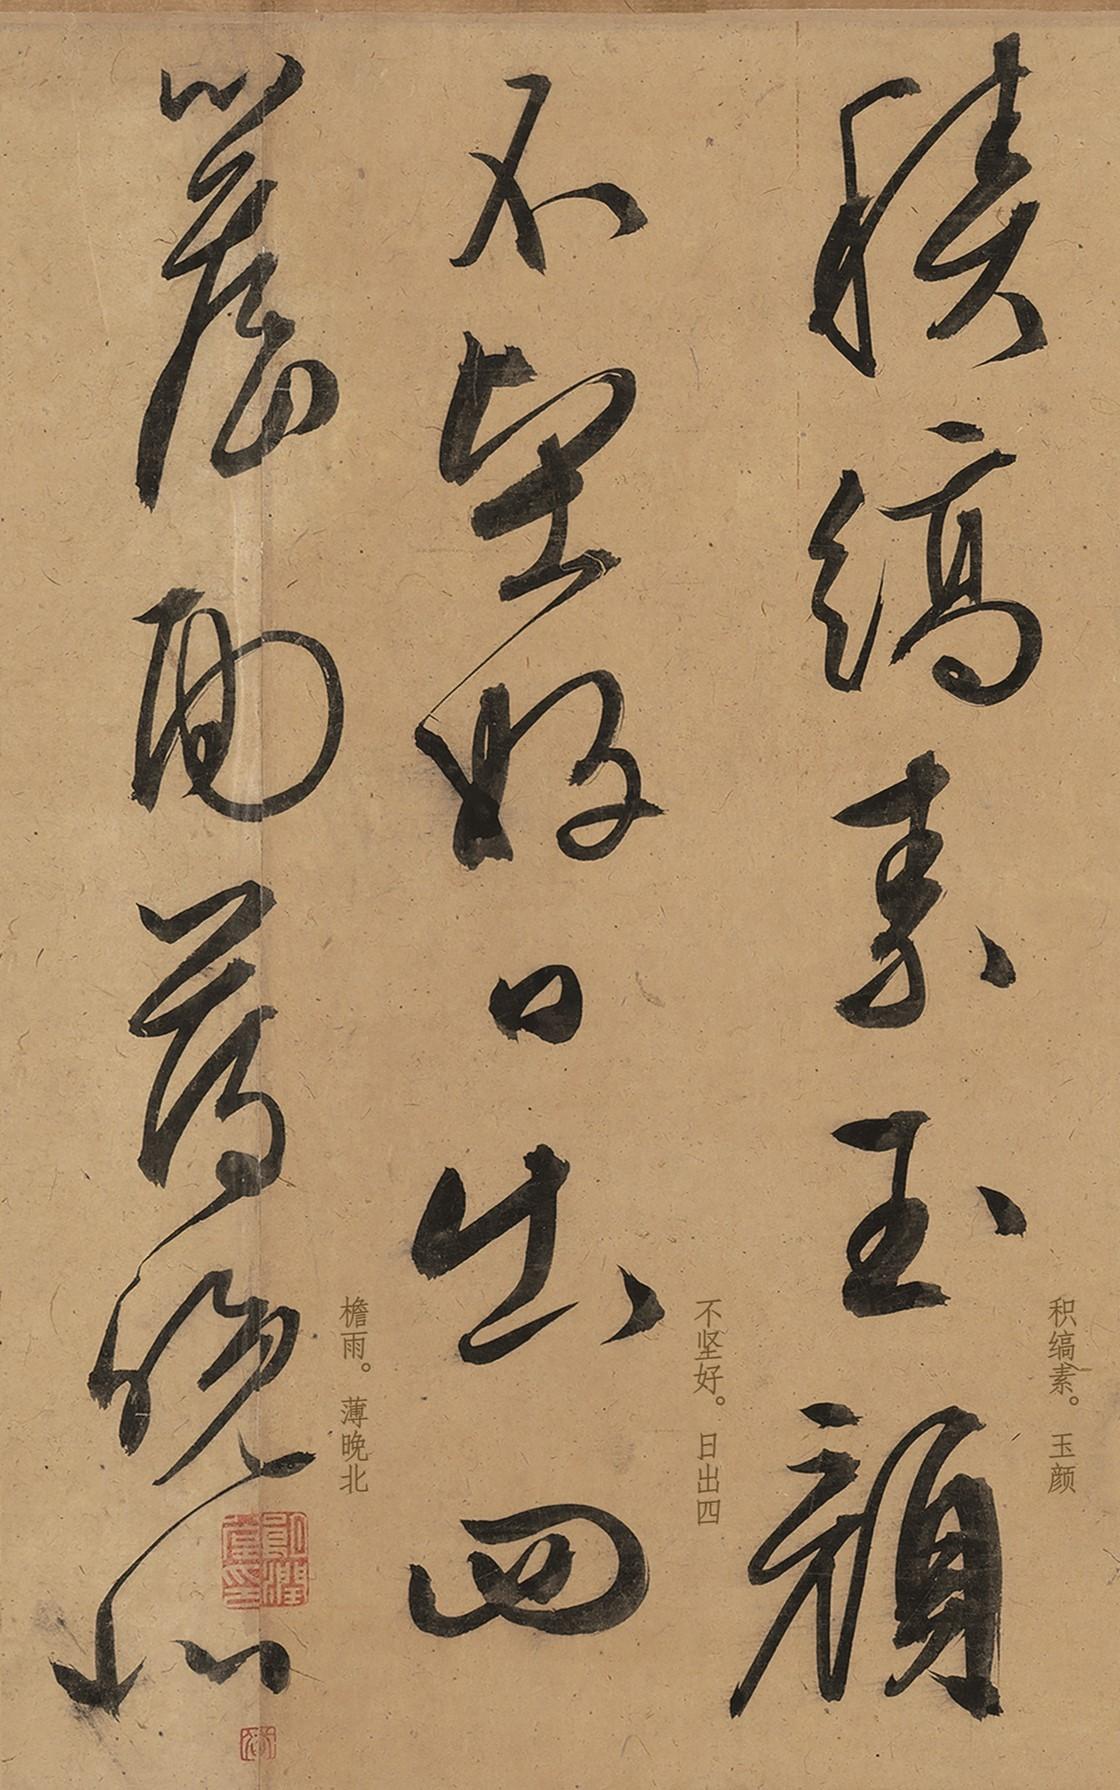 積縞素玉顏
积缟素。 玉颜
不堅好日出四
不坚好。 日出四
簷雨薄晚北
檐雨。 薄晚北